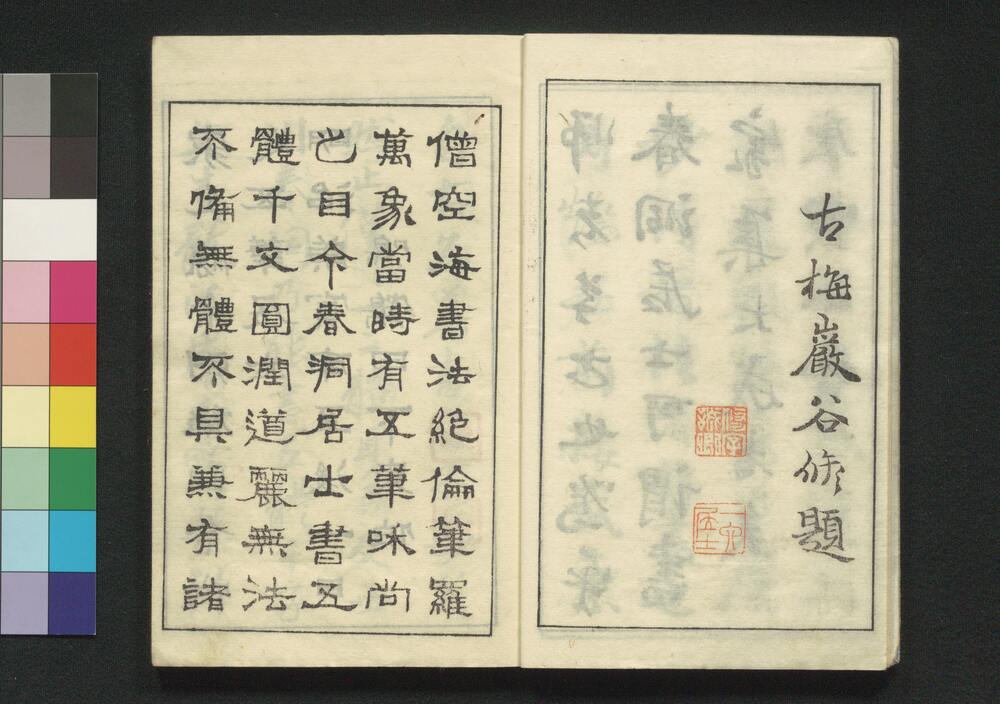 古梅巖谷修題
僧空海書法絶倫筆羅
萬象當時有五筆咊尚
之目今春洞居士書五
體千文圓潤遒麗無法
不備無體不具兼有諸